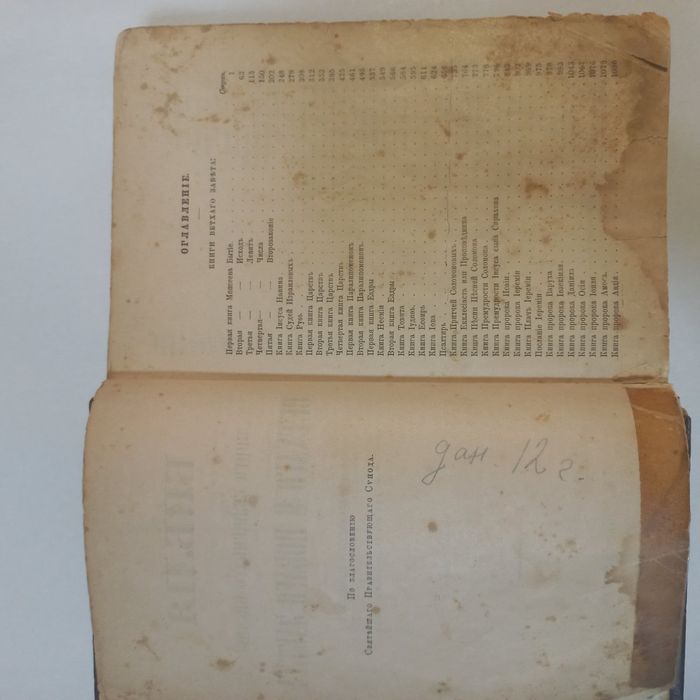 По благословенію
Святѣйшаго Правительствующаго Сѵнода.
дан. 12 г.
ОГЛАВЛЕНІЕ.
КНИГИ ВЕТХАГО ЗАВѢТА:
Стран.
Первая книга Моисеева Бытіе. 1
Вторая — — Исходъ 62
Третья — — Левитъ 115
Четвертая — — Числа 150
Пятая Второзаконіе 202
Книга Іисуса Навина 248
Книга Судей Израилевыхъ 278
Книга Руѳь 308
Первая книга Царствъ 312
Вторая книга Царствъ 352
Третья книга Царствъ 385
Четвертая книга Царствъ 425
Первая книга Паралипоменонъ 461
Вторая книга Паралипоменонъ 495
Первая книга Ездры 537
Книга Нееміи 549
Вторая книга Ездры 566
Книга Товита 584
Книга Іудиѳь 595
Книга Есѳирь 611
Книга Іова 624
Псалтирь
Книга Притчей Соломоновыхъ 735
Книга Екклесіаста или Проповѣдника 764
Книга Пѣсни Пѣсней Соломона 773
Книга Премудрости Соломона 778
Книга Премудрости Іисуса сына Сирахова 796
Книга пророка Исаіи
Книга пророка Іереміи
Книга Плачъ Іереміи 969
Посланіе Іереміи 975
Книга пророка Варуха 978
Книга пророка Іезекіиля 983
Книга пророка Даніила 1043
Книга пророка Осіи
Книга пророка Іоиля 1076
Книга пророка Амоса 1079
Книга пророка Авдія 1086